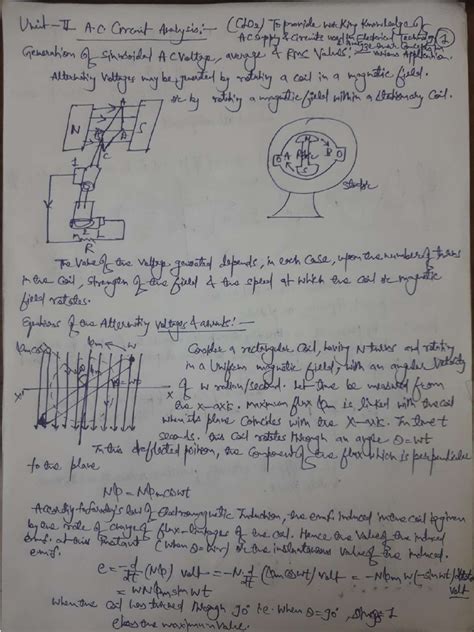 Unit-II A.C Circuit Analysis:- (CO2) To provide working knowledge of
AC Supply & Circuits used in Electrical Technology 1
Generation of Sinusoidal AC Voltage, average & RMS Values:-
Alternating Voltages may be generated by rotating a coil in a magnetic field.
or by rotating a magnetic field within a Stationary Coil.
N S
A B C
N
D A B
S
Stator
1 2
R
The Value of the Voltage generated depends, in each case, upon the number of turns
in the Coil, strength of the field & the speed at which the coil or magnetic
field rotates.
Equations of the Alternating Voltages & Currents:-
Consider a rectangular Coil, having N turns and rotating
in a Uniform magnetic field, with an angular velocity
of w radian/second. Let time be measured from
the X-axis. maximum flux Φm is linked with the coil
when its plane Coincides with the X-axis. In time t
seconds, this Coil rotates through an angle θ=wt
In this deflected position, the Component of the flux which is perpendicular
to the plane
NΦ = NΦm coswt
According Faraday's law of Electromagnetic Induction, the e.m.f. induced in the coil is given
by the rate of change of flux-linkages of the coil. Hence the Value of the induced
e.m.f. at this instant (when θ=wt) or the instantaneous Value of the induced
e.m.f.
e = -d/dt (NΦ) volt = -N. d/dt (Φm coswt) volt = -NΦm w(-sinwt) volt
= wNΦm sinwt volt
When the coil has turned through 90° i.e. when θ=90°, sinθ=1
e has the maximum Value.